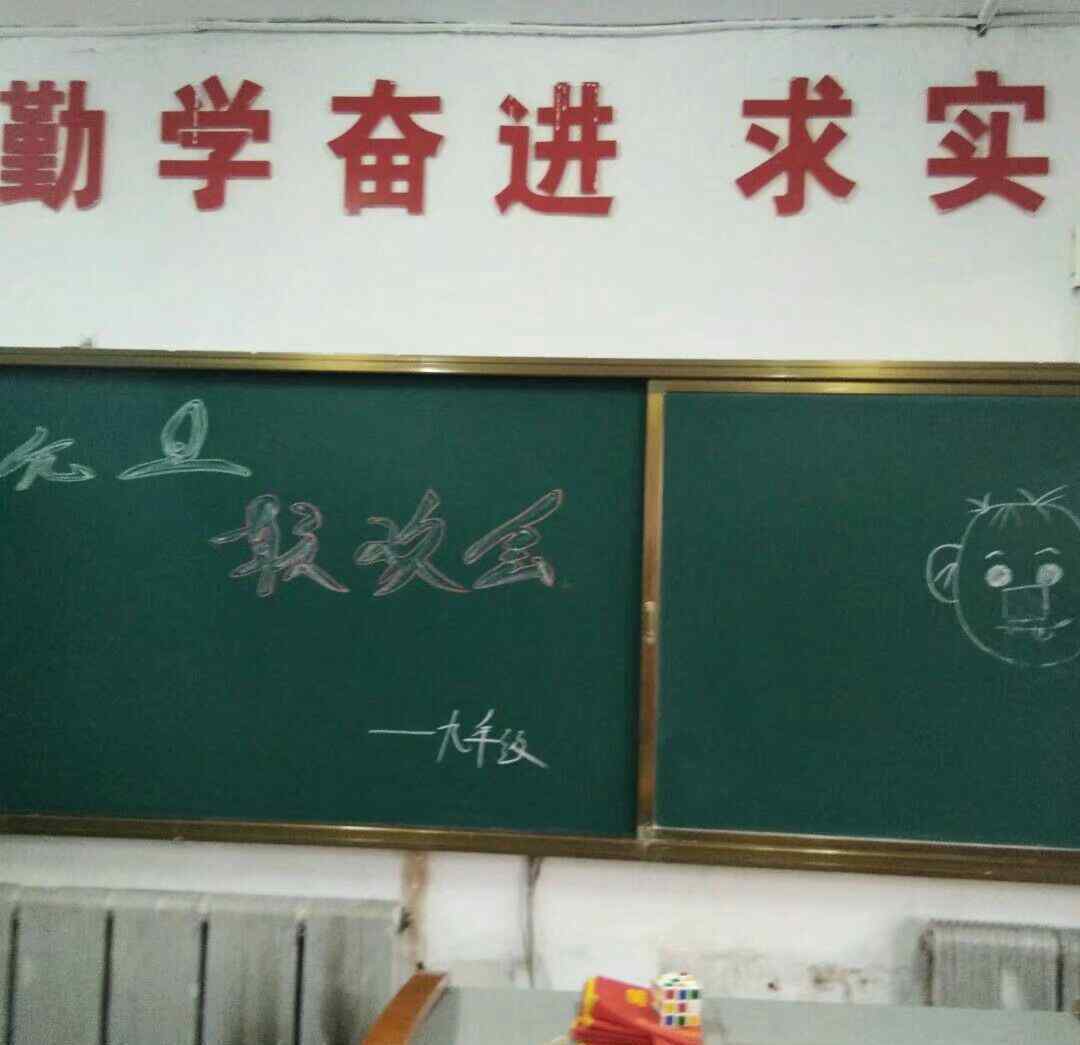 勤学奋进 求实
元旦
联欢会
——九年级